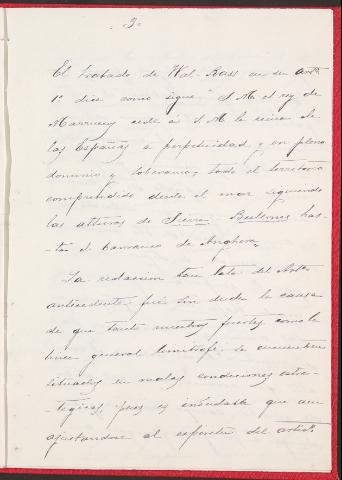 3
El tratado de Wal-Rass en su artº
1º dice como sigue "S. M. el rey de
Marruecos cede á S. M. la reina de
las Españas a perpetuidad y en pleno
dominio y soberanía, todo el territorio
comprendido desde el mar siguiendo
las alturas de Sierra Bullones has-
-ta el barranco de Anghera
La redaccion tan lata del Artº
antecedente fué sin duda la causa
de que tanto nuestros fuertes, como la
linea general limitrofe se encuentren
situados en malas condiciones estra-
-tegicas, pues es indudable que aun
ajustandose al espiritu del artº